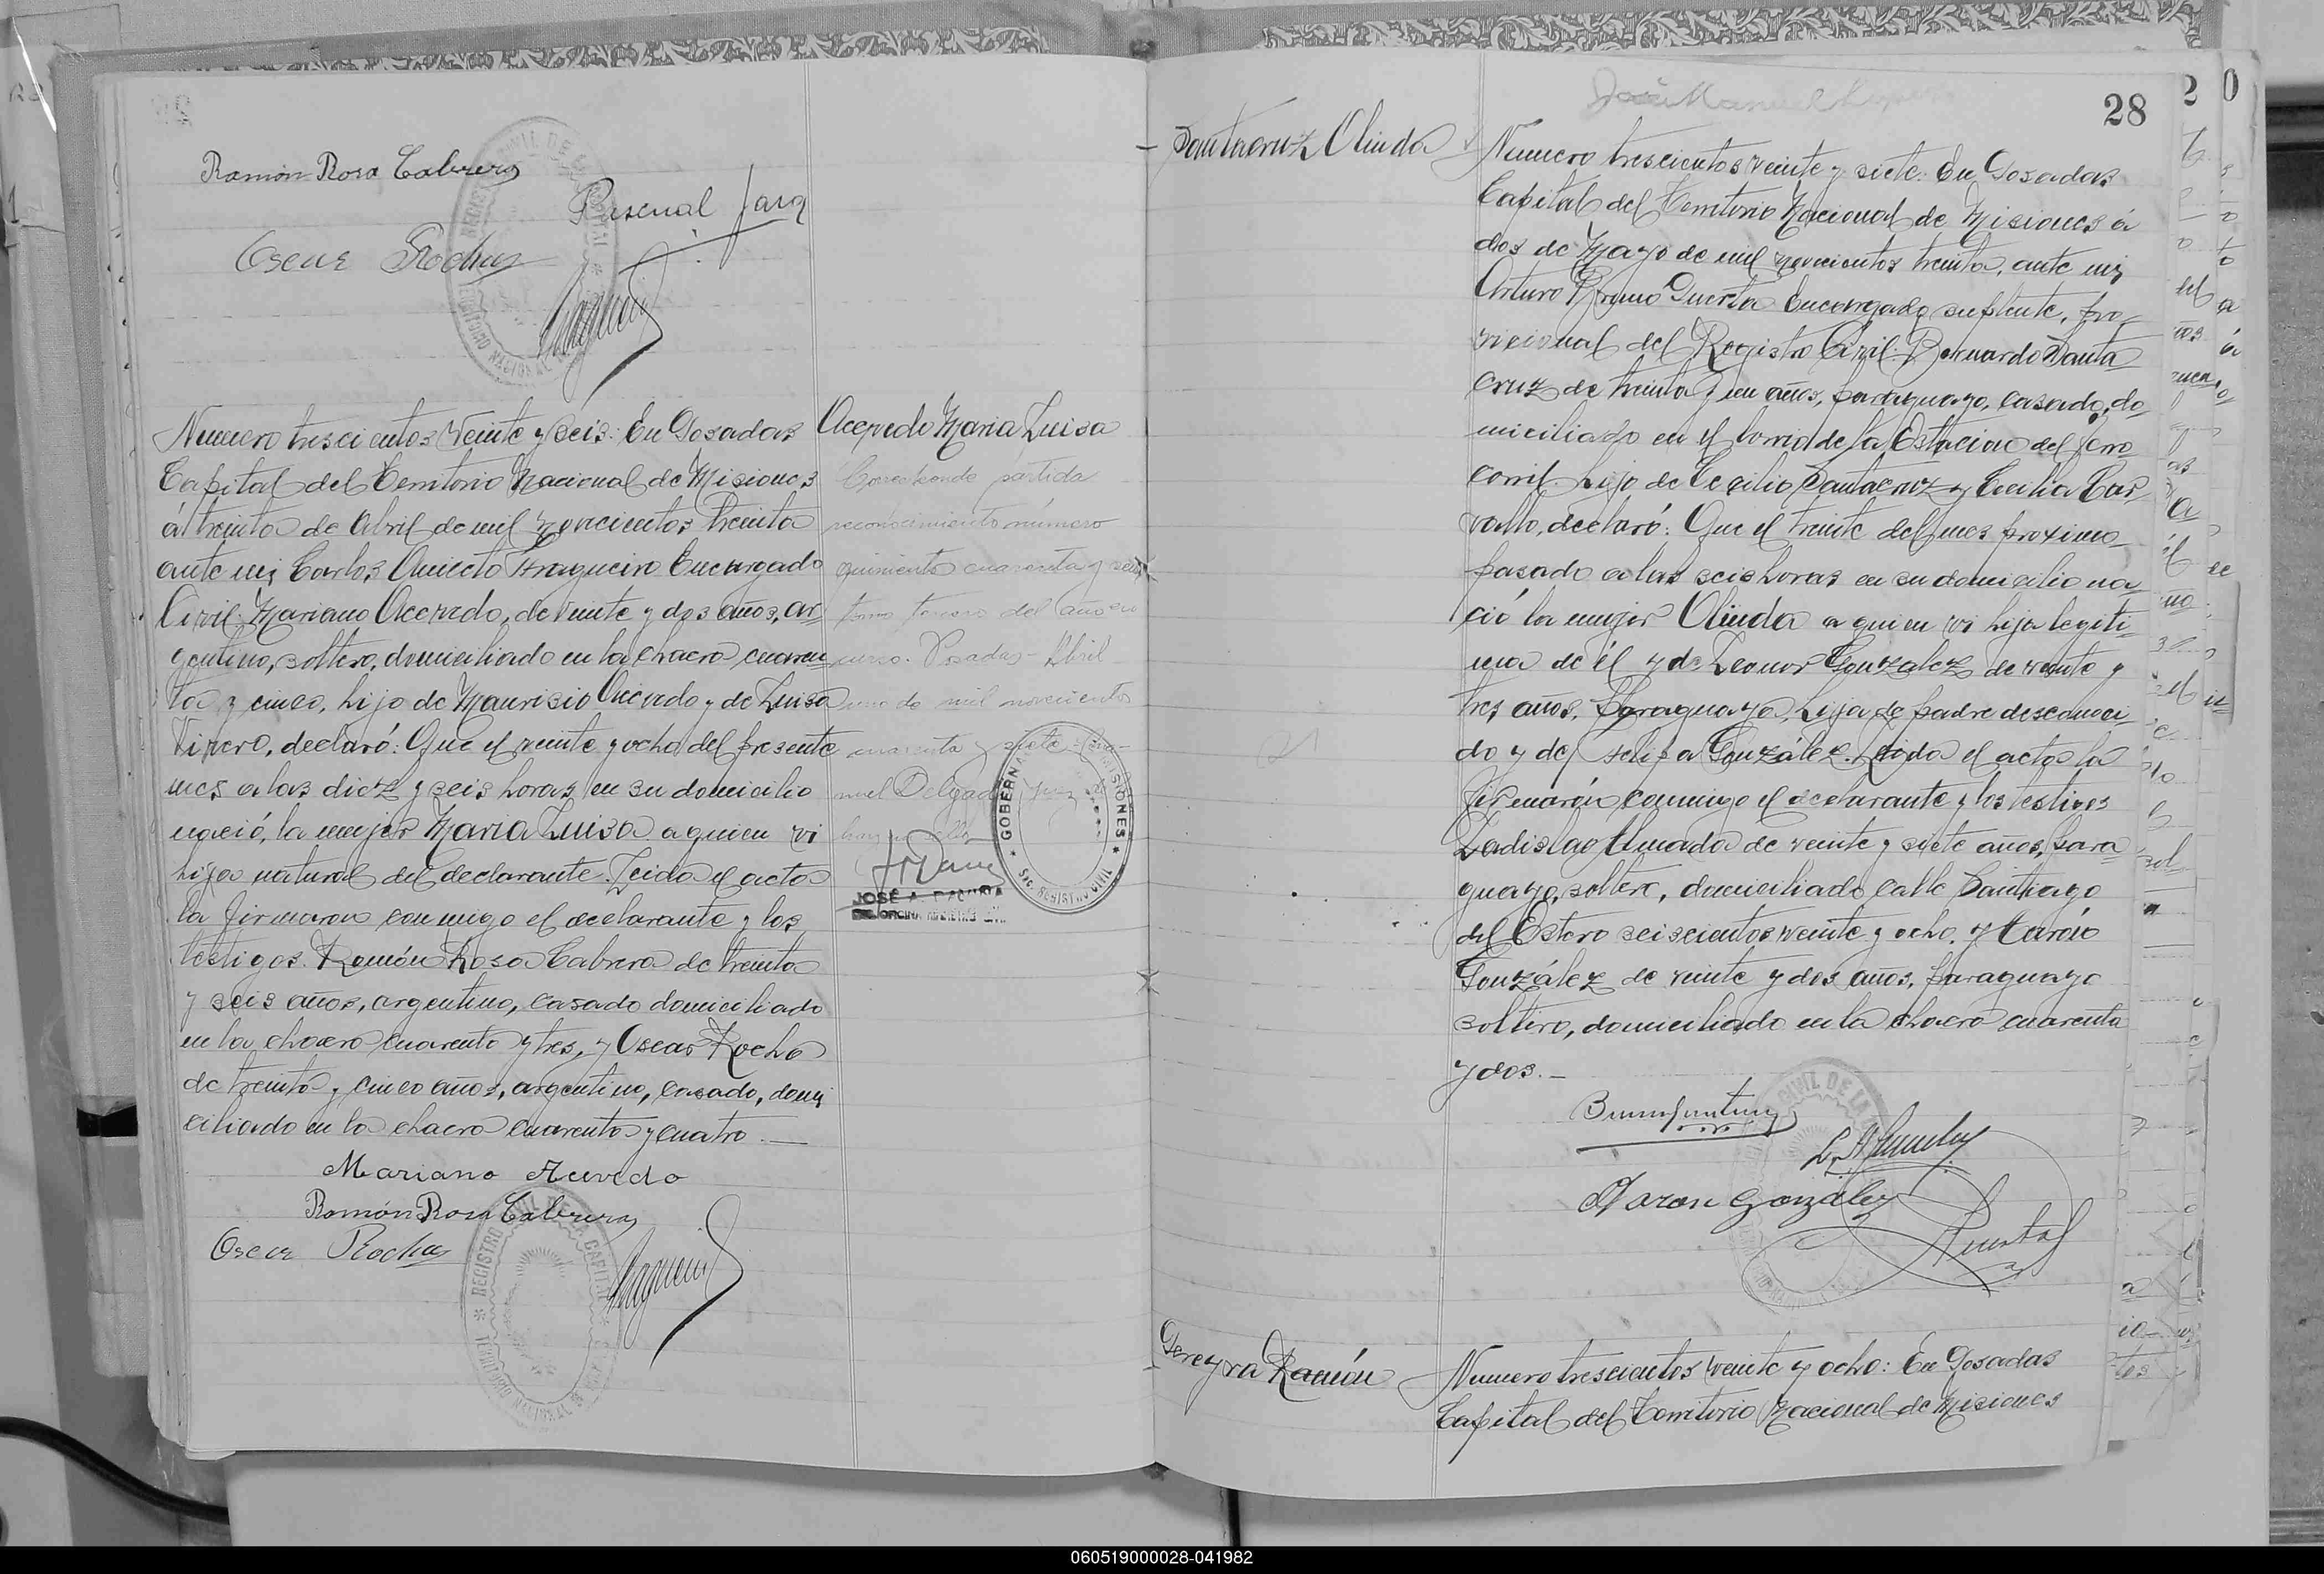 Ramón Rosa Cabrera
Pascual Jara
Oscar Rocha
Numero trescientos veinte y seis: En Posadas
Capital del Territorio Nacional de Misiones
á treinta de Abril de mil novecientos treinta
ante mi Carlos Aniceto Fragueiro Encargado
Civil. Mariano Acevedo, de veinte y dos años, ar-
gentino, soltero, domiciliado en la chacra cuaren
ta y cinco, hijo de Mauricio Acevedo y de Luisa
Vivero, declaró: Que el veinte y ocho del presente
mes a las diez y seis horas en su domicilio
nació, la mujer Maria Luisa a quien vi
hija natural del declarante. Leida el acta
la firmaron conmigo el declarante y los
testigos. Ramón Rosa Cabrera de treinta
y seis años, argentino, casado domiciliado
en la chacra cuarenta y tres, y Oscar Rocha
de treinta y cinco años, argentino, casado, domi
ciliado en la chacra cuarenta y cuatro.—
Mariano Acevedo
Ramón Rosa Cabrera
Oscar Rocha
REGISTRO CIVIL DE LA CAPITAL
TERRITORIO NACIONAL DE
Acevedo Maria Luisa
Corresponde partida
reconocimiento número
quinientos cuarenta y seis
tomo tercero del año en
curso. Posadas - Abril
uno de mil novecientos
cuarenta y siete
Delgado
JOSÉ A.
GOBERNA MISIONES
28
Santacruz Olinda
José Manuel
Numero trescientos veinte y siete: En Posadas
Capital del Territorio Nacional de Misiones á
dos de Mayo de mil novecientos treinta, ante mi
Arturo Bruno Puerta Encargado suplente, pro-
vicional del Registro Civil. Bernardo Santa
Cruz de treinta y un años, paraguayo, casado, do-
miciliado en el barrio de la Estacion del ferro
carril. hijo de Cecilio Santacruz y Cecilia Car
vallo, declaró: Que el treinta del mes proximo
pasado a las seis horas en su domicilio na-
ció la mujer Olinda a quien vi hija legiti-
ma de él y de Leonor Gonzalez de veinte y
tres años, Paraguaya, hija de padre desconoci-
do y de Felipa González. Leida el acta la
firmarón conmigo el declarante y los testigos
Ladislao Almada de veinte y siete años, para
guayo, soltero, domiciliado calle Santiago
del Estero seiscientos veinte y ocho. y Aarón
González de veinte y dos años, paraguayo
soltero, domiciliado en la chacra cuarenta
y dos.—
Aaron González
Pereyra Ramón
Numero trescientos veinte y ocho: En Posadas
Capital del Territorio Nacional de Misiones
060519000028-041982